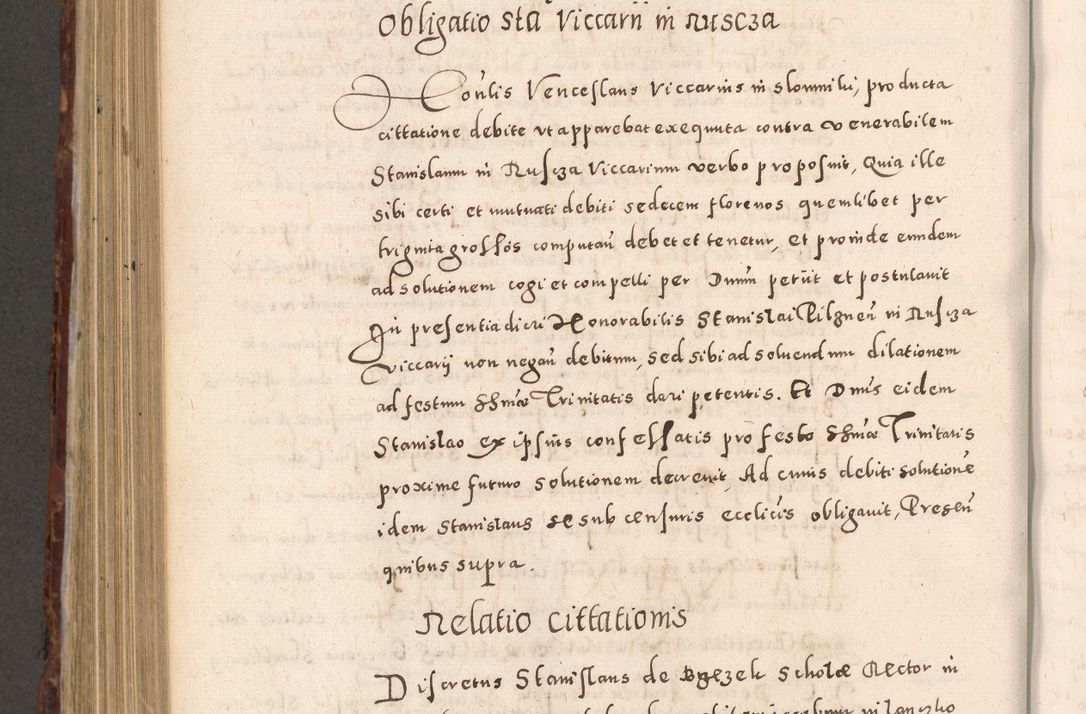 Obligatio Sta Viccarii in Ruscza
Honlis Venceslaus Viccarius in Slomniki, producta
cittatione debite vt apparebat exequuta contra venerabilem
Stanislaum in Ruscza Viccarium verbo proposuit, Quia ille
sibi certi et mutuati debiti sedecem florenos quemlibet per
triginta grossos computan̄ debet et tenetur, et proinde eundem
ad solutionem cogi et compelli per Dnum petiit et postulauit
In presentia dicti Honorabilis Stanislai Pilznen̄ in Ruscza
viccarij non negan̄ debitum, sed sibi ad soluendum dilationem
ad festum Sctimæ Trinitatis dari petentis. Et Dnus eidem
Stanislao ex ipsius confessatis pro festo Sctimæ Trinitatis
proxime futuro solutionem decreuit, Ad cuius debiti solutionē
idem Stanislaus se sub censuris ecclicis obligauit, Presen̄
quibus supra.
Relatio cittationis
Discretus Stanislaus de Bgezek Scholæ Rector in